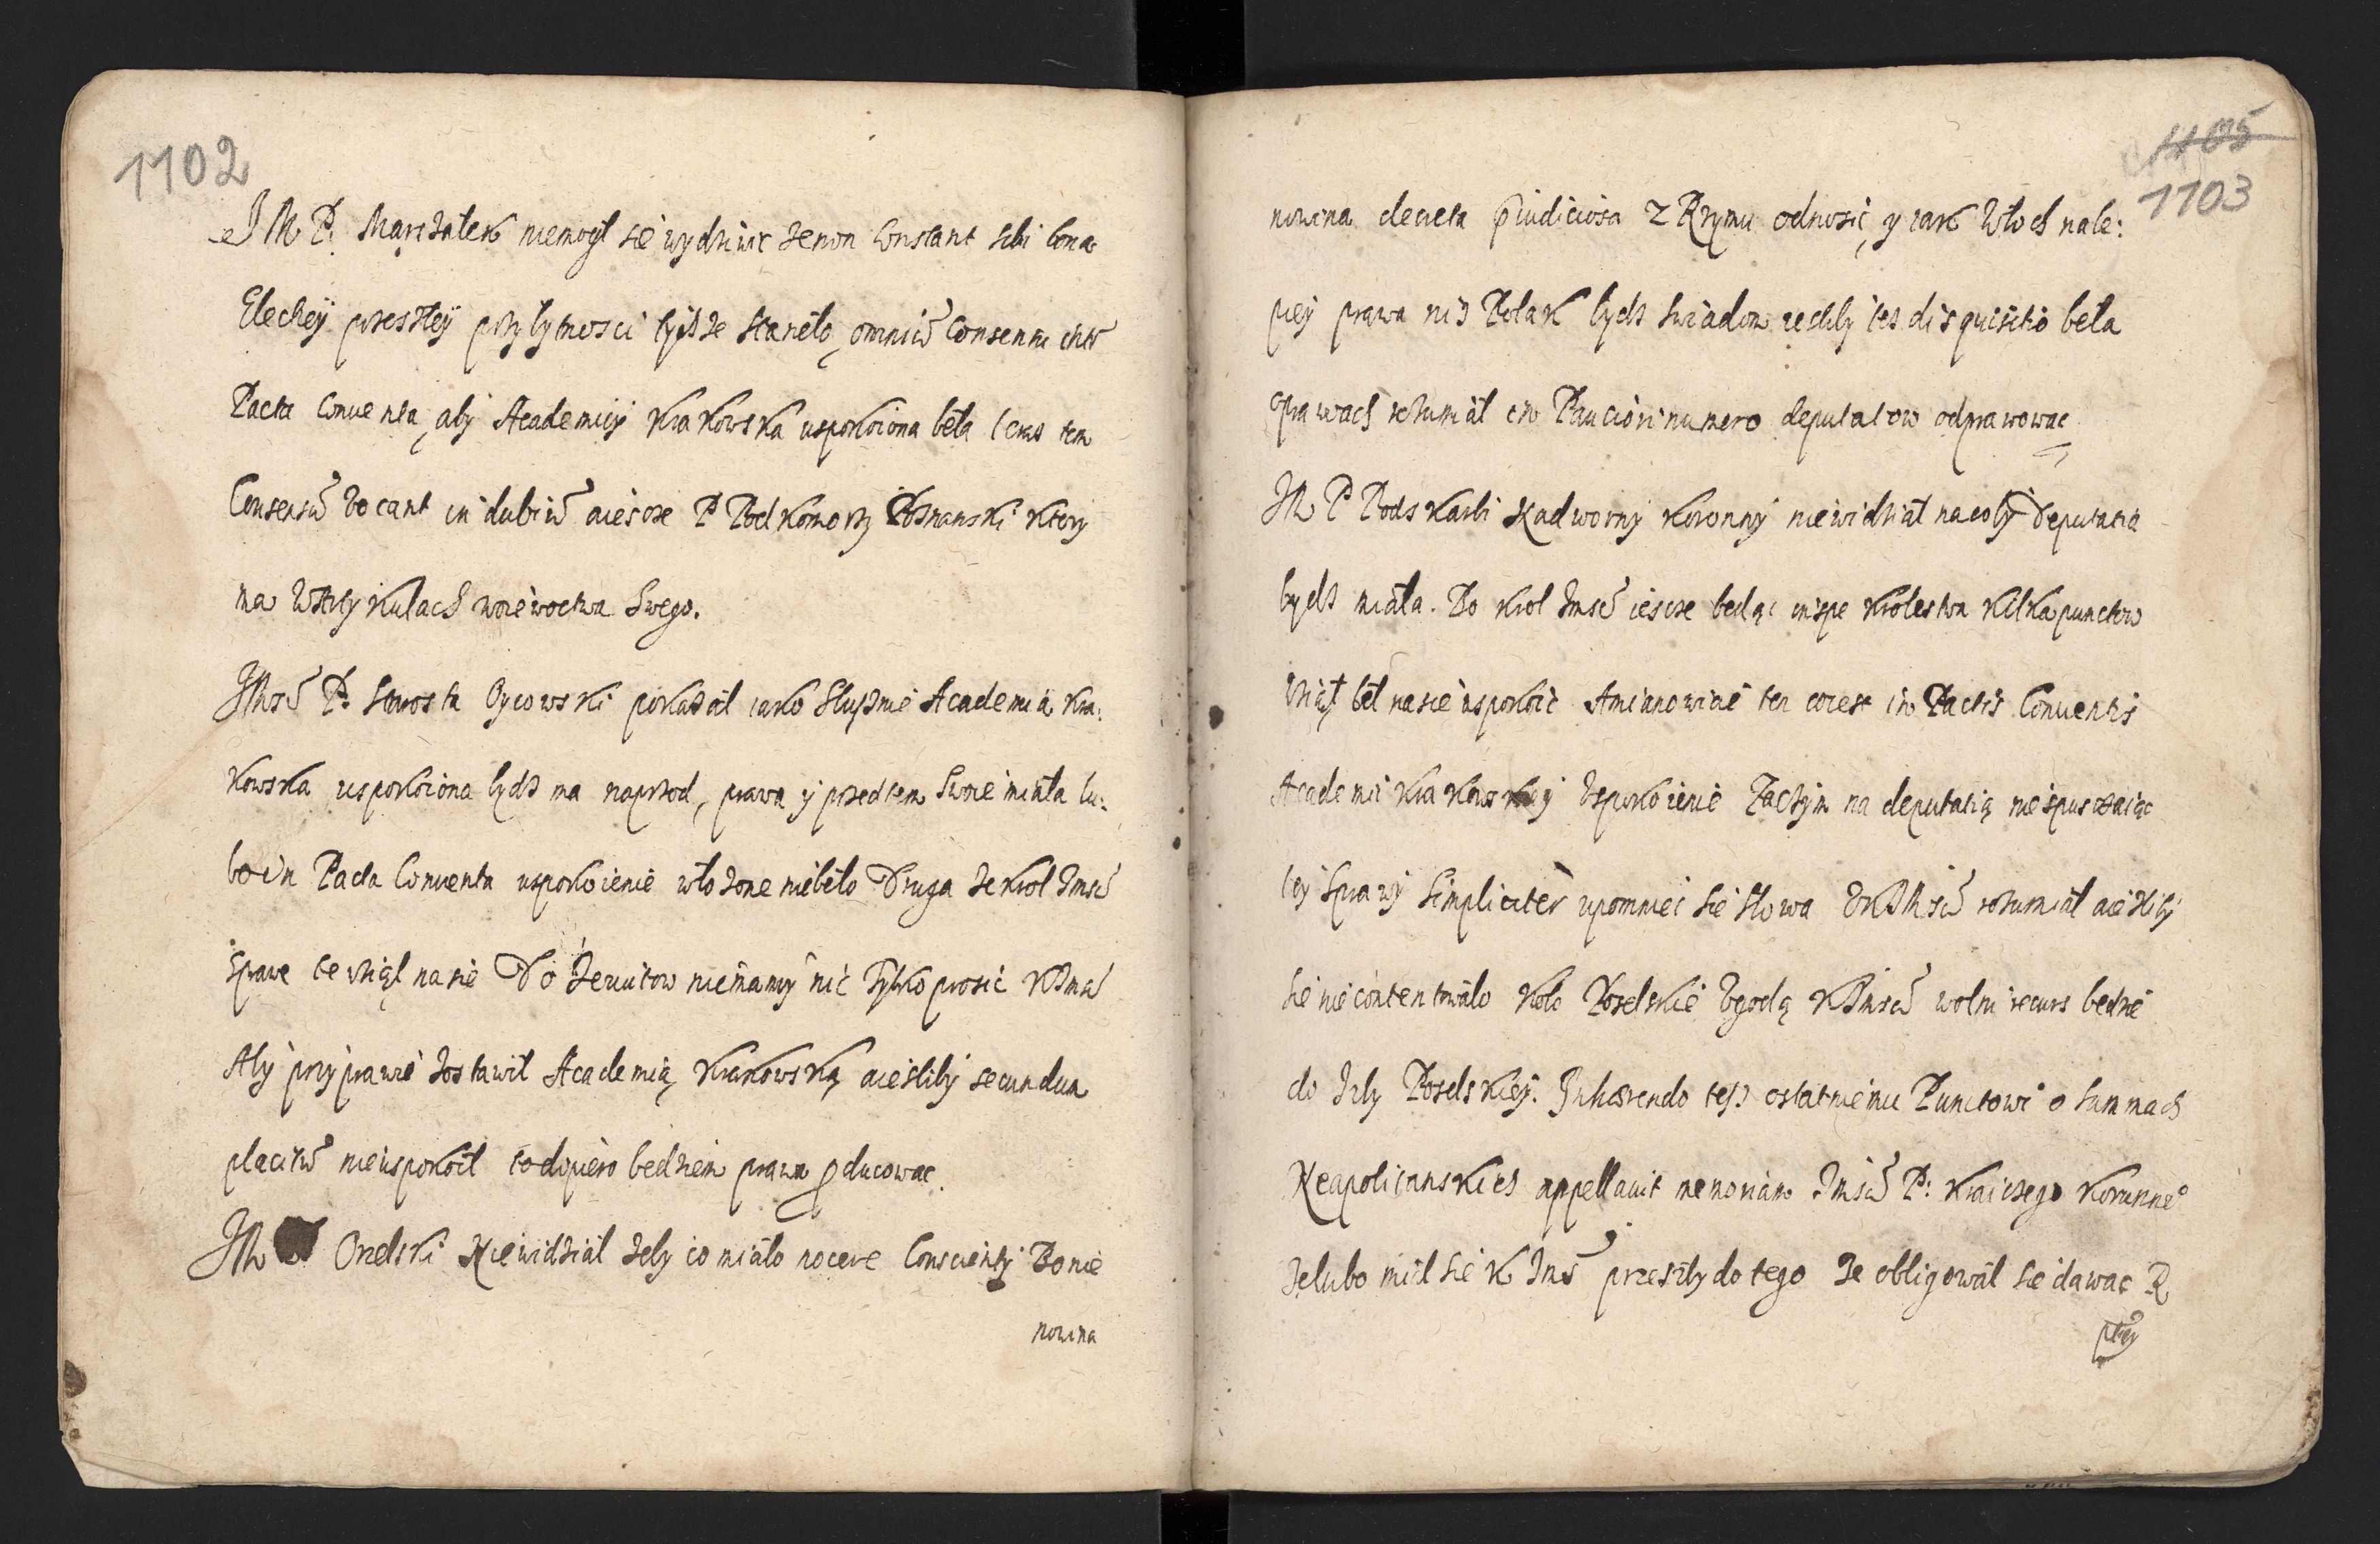 1102
J M P. Marszałek niemogł sie wydziwic ze non Constant sibi bona
Elekcey przeszłey przytymosci tychze staneło, omniũ Consensu
Pacta Conventa, aby Academiey Krakowska uspokoiona beła teras ten
Consensũ vocant in dubiũ aiescze P Podkomorzy Poznanski ktory
na Wartykulach woiewoctwa Swego.
JMsc P. Starosta Oycowski pokazał iako Słusznie Academia Kra:
kowska uspokoiona bydz ma naprzod, prawa y przedtem Swoie miała lu:
bo in Pacta Conventa uspokoienie włozone niebeło Druga ze krol Jmsc
Sprawe te wziął na sie Do Jezuitow niemamy nic Tylko prosic KJmsc
Aby przy prawie zostawił Academią Krakowską aiesliby secundum
placitũ nieuspokoił todopiero bedziem prawa producowac.
JM Orzelski Niewidział zeby co miało nocere Consciencÿ Bo nie
nowina
1105
1103
nowina decreta piudiciosa z Rzymu odnosic, y iak Włoch nale:
piey prawa nis Polak bydz swiadom: iesliby tes disquisitio beła
oprawach rozumiał in Pauciori numero deputatow odprawowac
JM P Podskarbi Nadworny Koronny niewidział nacoby Deputatia
bydz miała. Bo krol Jmsc iescze bedąc in spe krolestwa kilka punctow
Wziął beł na sie uspokoic Amianowicie ten co iest in Pactis Conventis
Academii Krakowskiey Uspokoienie Zaczym na deputatią niespusczaiąc
tey Sprawy Simpliciter upomniec sie słowa UKJMsci rozumiał aiezliby
sie niecontentowało koło Poselskie Zgodą KJmsci wolni recurs bedzie
do Jzby Poselskiey. Inhærendo tesz ostatniemu Punctowi o Summach
Neapolitanskich appellavit memoriam Jmsci P: Kraiczego Koronneo
Zelubo mial sie K Jms przeszły do tego Ze obligował sie dawac R